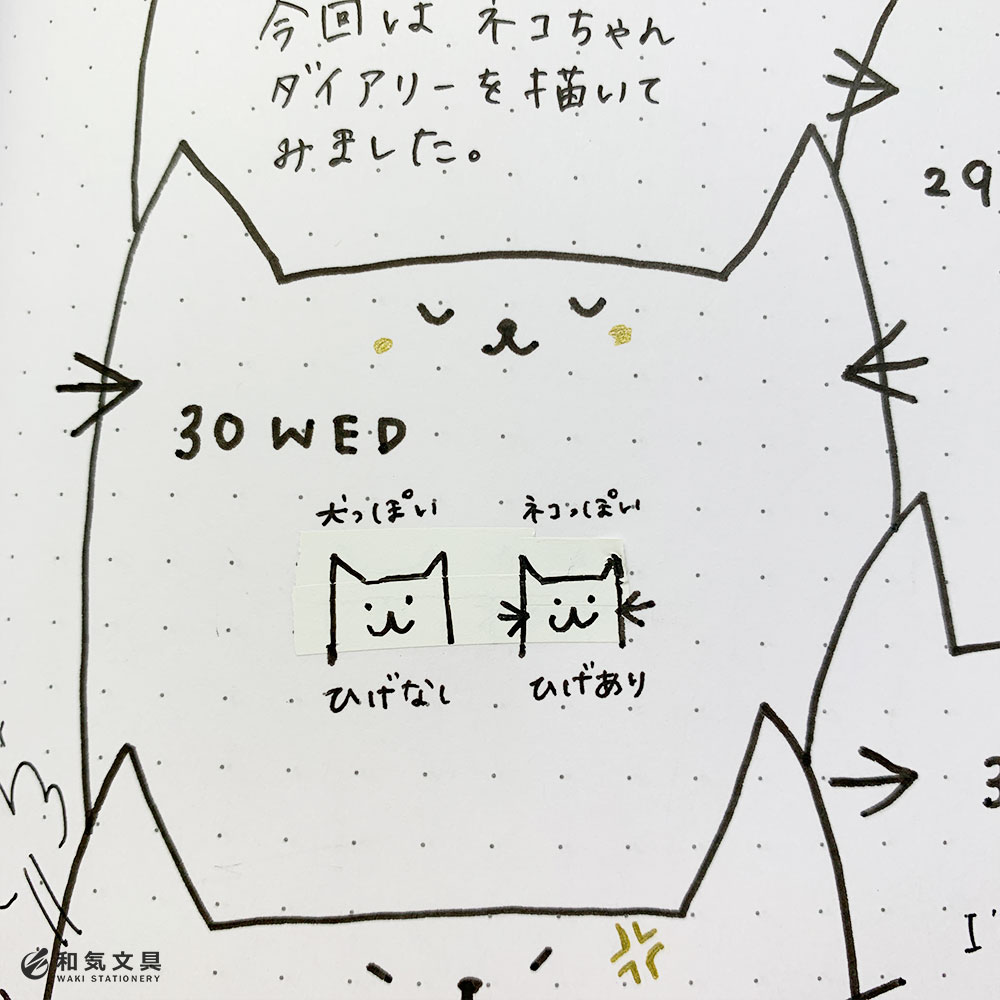 今回は ネコちゃん
ダイアリーを描いて
みました。
29
30 WED
犬っぽい ネコっぽい
ひげなし ひげあり
3
I'
和気文具
WAKI STATIONERY